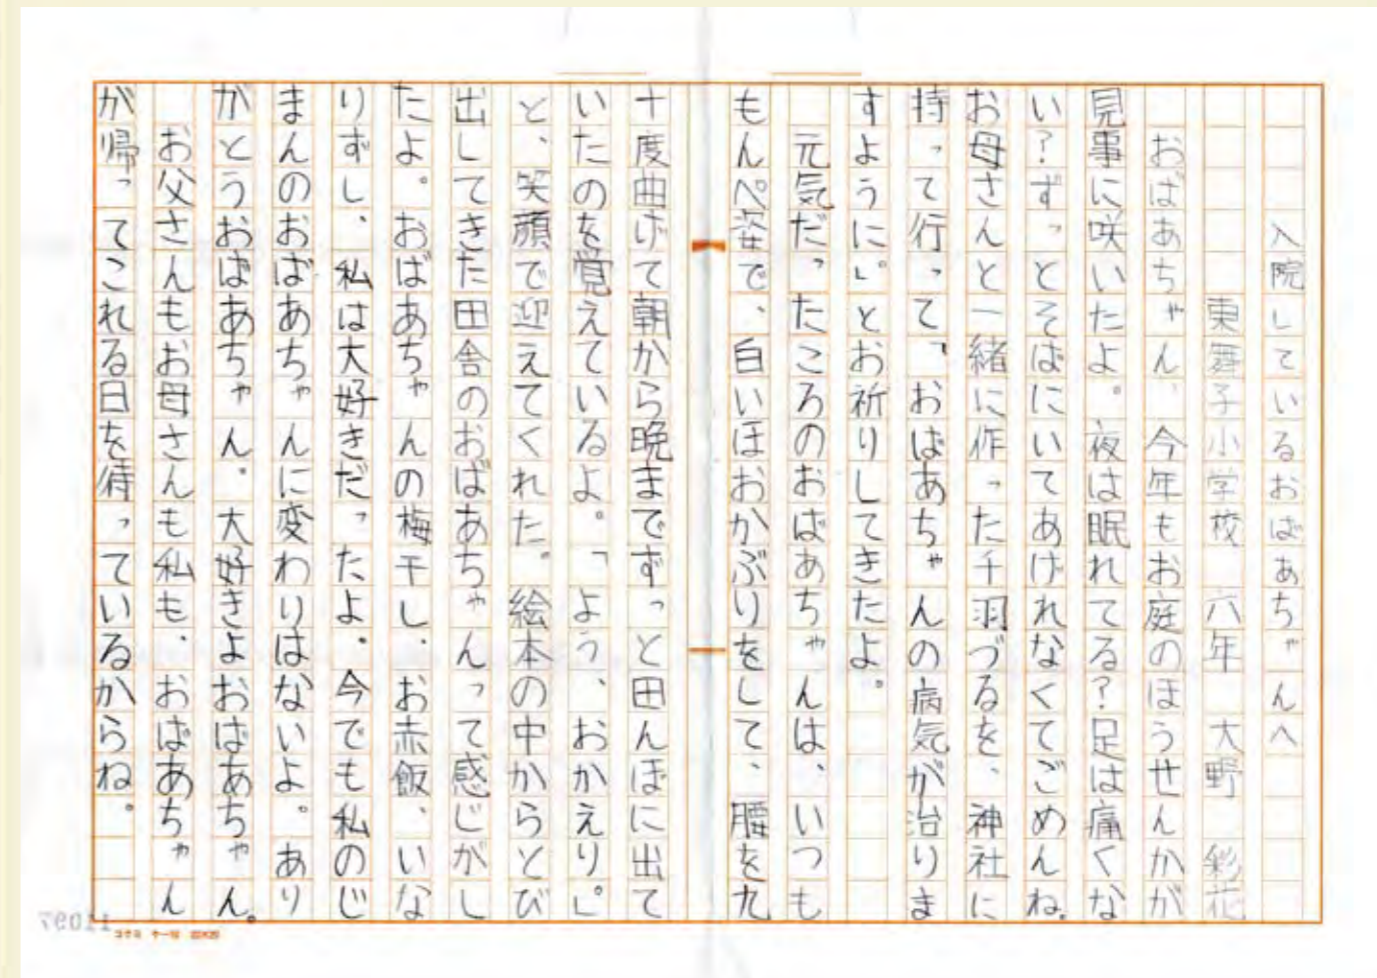 入院しているおばあちゃんへ
東舞子小学校 六年 大野 彩花
おばあちゃん、今年もお庭のほうせんかが
見事に咲いたよ。夜は眠れてる?足は痛くな
い?ずっとそばにいてあげれなくてごめんね。
お母さんと一緒に作った千羽づるを、神社に
持って行って「おばあちゃんの病気が治りま
すように。」とお祈りしてきたよ。
元気だったころのおばあちゃんは、いつも
もんペ姿で、白いほおかぶりをして、腰を九
十度曲げて朝から晩までずっと田んぼに出て
いたのを覚えているよ。「よう、おかえり。」
と、笑顔で迎えてくれた。絵本の中からとび
出してきた田舎のおばあちゃんって感じがし
たよ。おばあちゃんの梅干し、お赤飯、いな
りずし、私は大好きだったよ。今でも私のじ
まんのおばあちゃんに変わりはないよ。あり
がとうおばあちゃん。大好きよおばあちゃん。
お父さんもお母さんも私も、おばあちゃん
が帰ってこれる日を待っているからね。
コクヨ ケー10 20×20